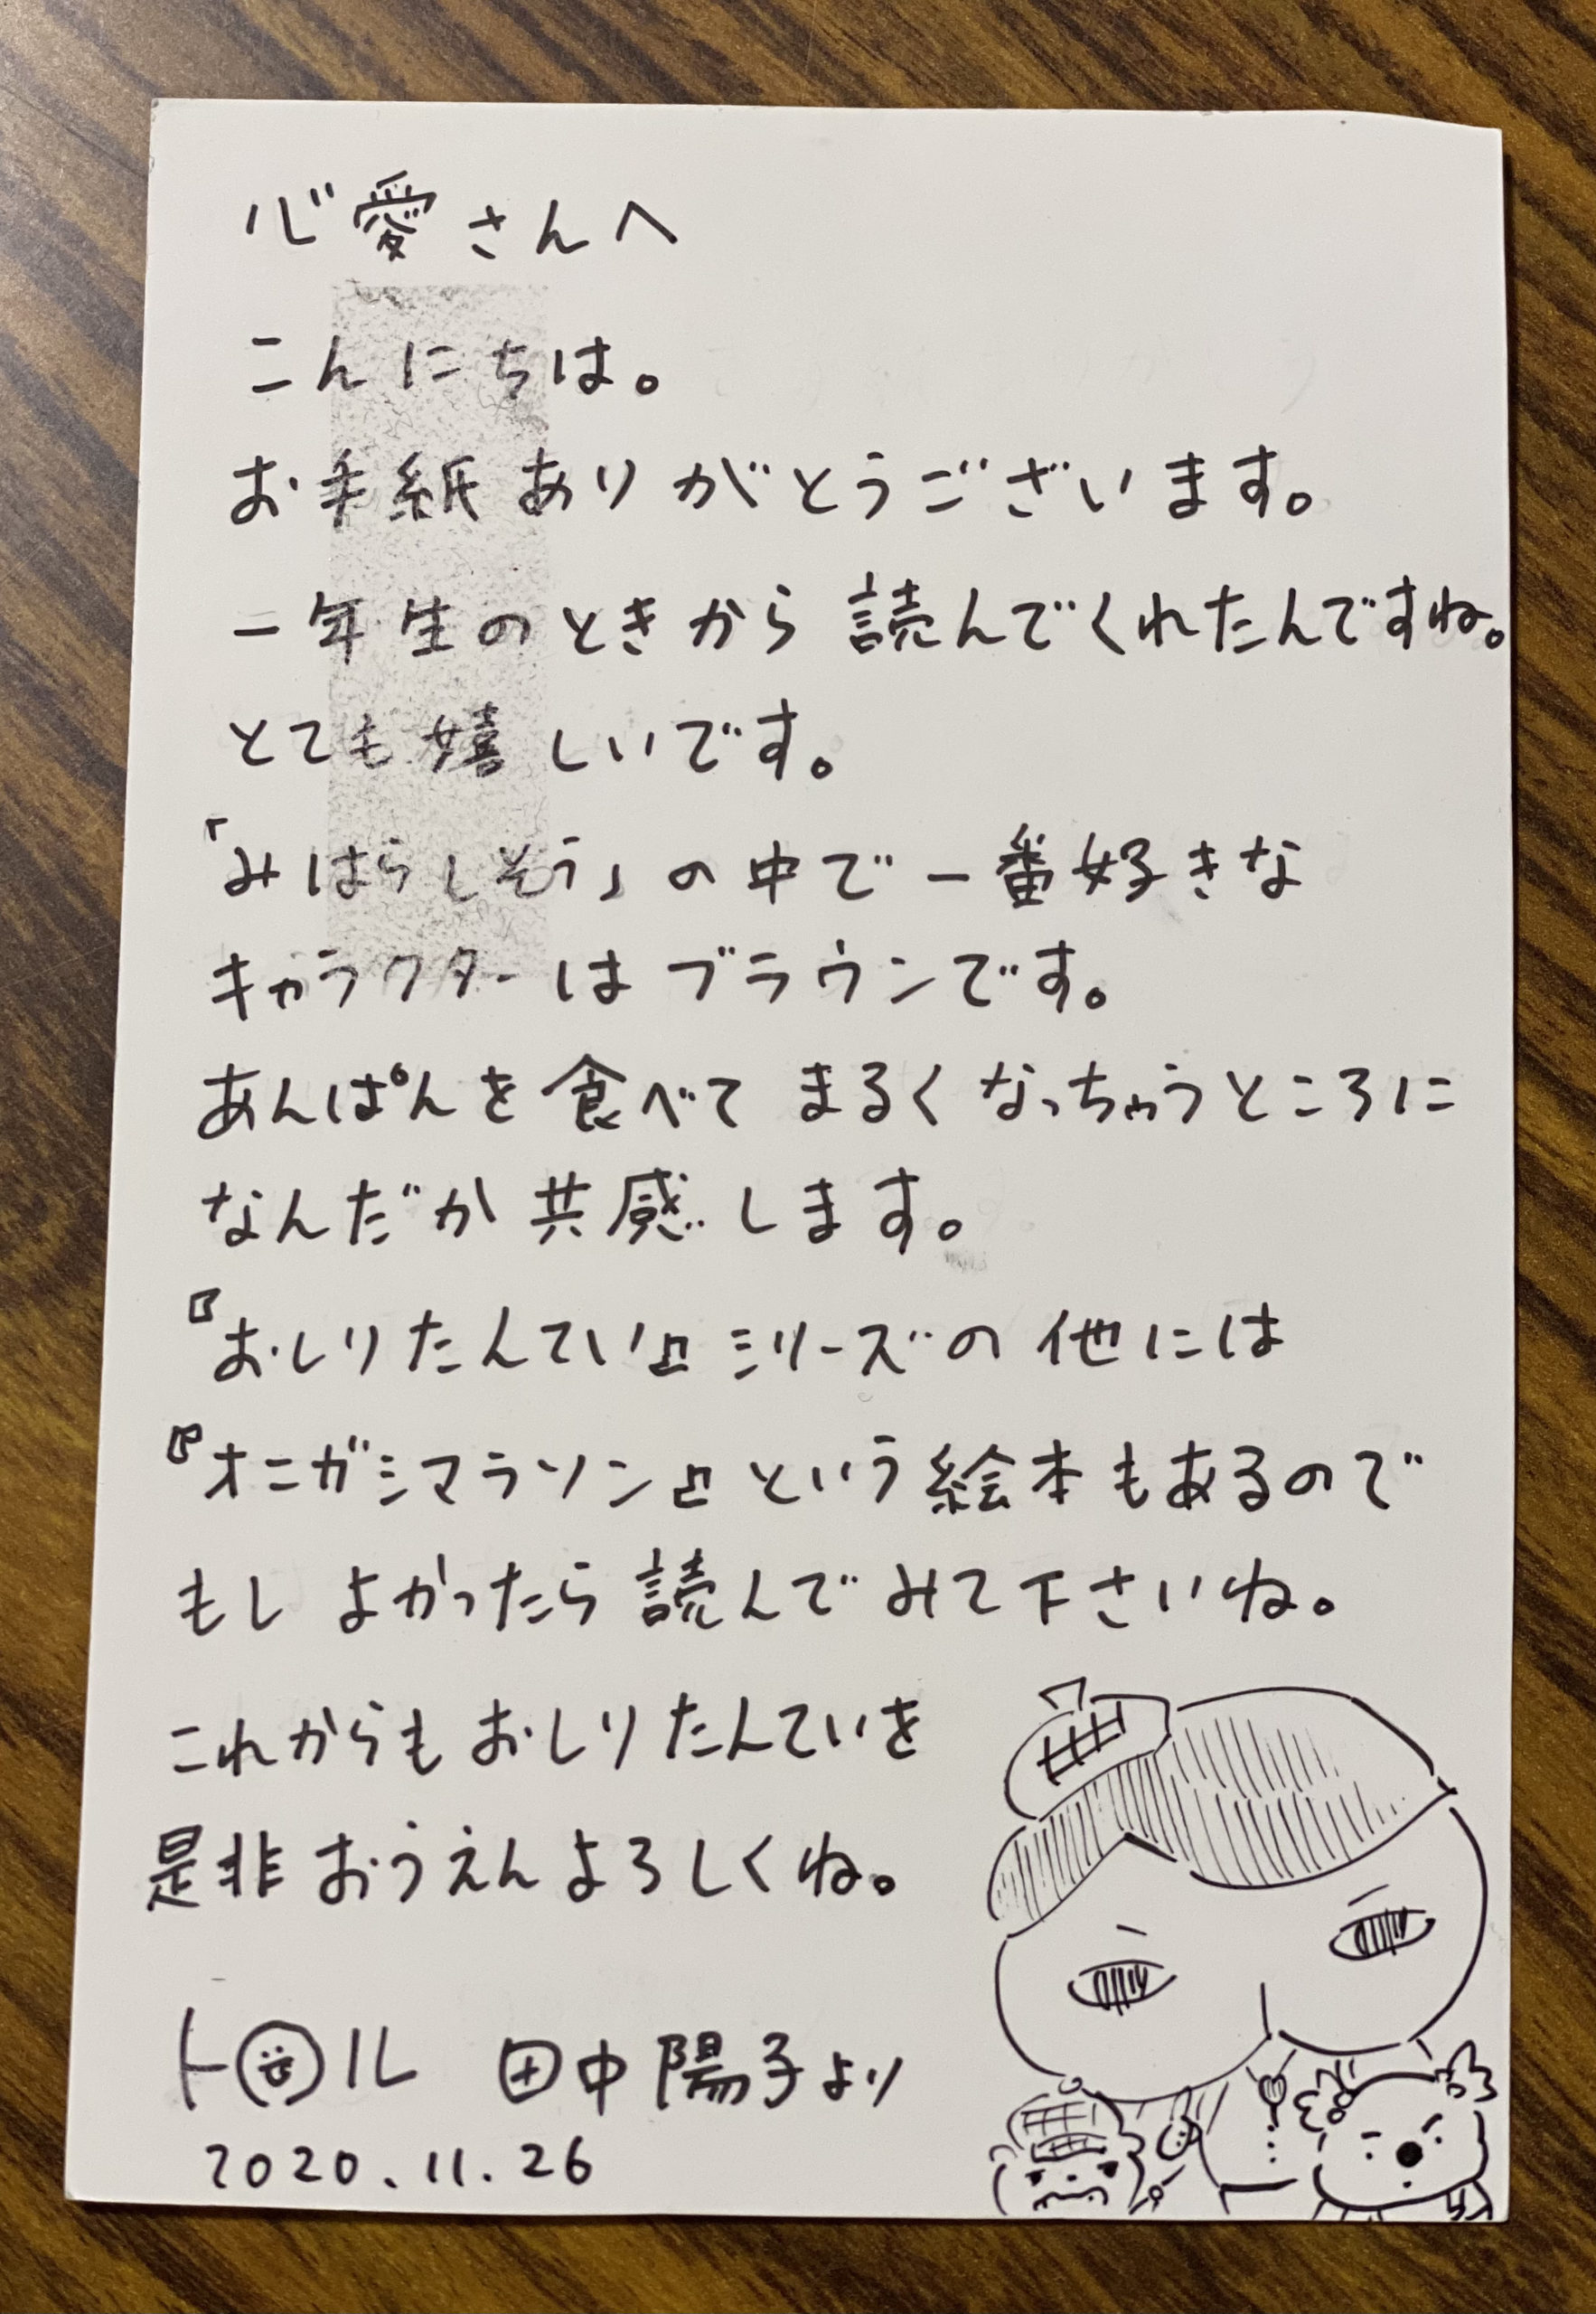 心愛さんへ
こんにちは。
お手紙ありがとうございます。
一年生のときから読んでくれたんですね。
とても嬉しいです。
「みはらしそう」の中で一番好きな
キャラクターはブラウンです。
あんぱんを食べてまるくなっちゃうところに
なんだか共感します。
『おしりたんてい』シリーズの他には
『オニガシマラソン』という絵本もあるので
もしよかったら読んでみて下さいね。
これからもおしりたんていを
是非おうえんよろしくね。
トロル 田中陽子より
2020.11.26